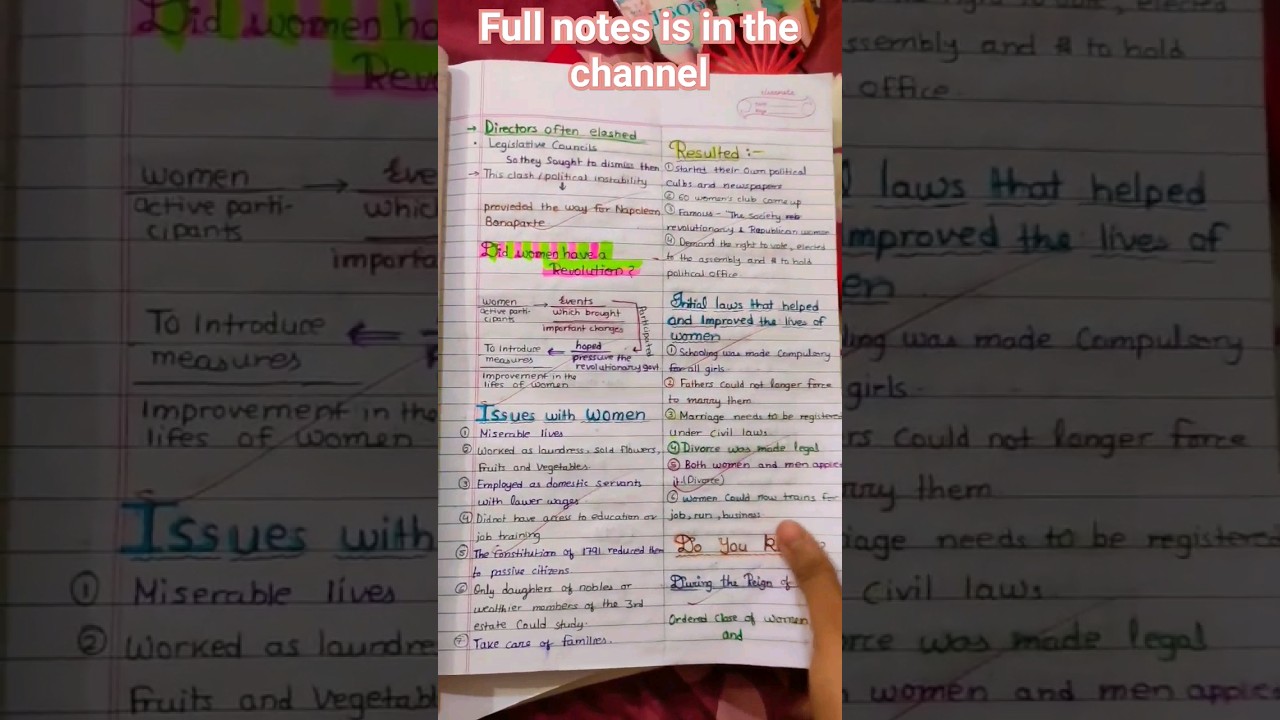 Full notes is in the
channel
classmate
→ Directors often clashed
• Legislative Councils
So they sought to dismiss them
→ This clash / political instability
↓
provieded the way for Napoleon
Bonaparte
Did women have a
Revolution?
women → Events
active parti- which brought
cipants important changes
Participated
To Introduce ⇐ hoped
measures pressure the
revolutionary govt
Improvement in the
lifes of women
Issues with women
① Miserable lives
② Worked as laundress, sold flowers,
Fruits and Vegetables.
③ Employed as domestic servants
with lower wages
④ Didnot have access to education or
job training
⑤ The Constitution of 1791 reduced them
to passive citizens
⑥ Only daughters of nobles or
wealthier members of the 3rd
estate could study.
⑦ Take care of families.
Resulted :-
① Started their own political
culbs and newspapers
② 60 women's club came up
③ Famous - "The Society
revolutionary & Republican women
④ Demand the right to vote, elected
to the assembly and to hold
political office
Initial laws that helped
and Improved the lives of
women
① Schooling was made Compulsory
for all girls.
② Fathers could not longer force
to marry them
③ Marriage needs to be registered
under Civil laws
④ Divorce was made legal
⑤ Both women and men
it (Divorce)
⑥ women could now trains for
job, run, business
Do you
During the Reign of
Ordered close of women
and